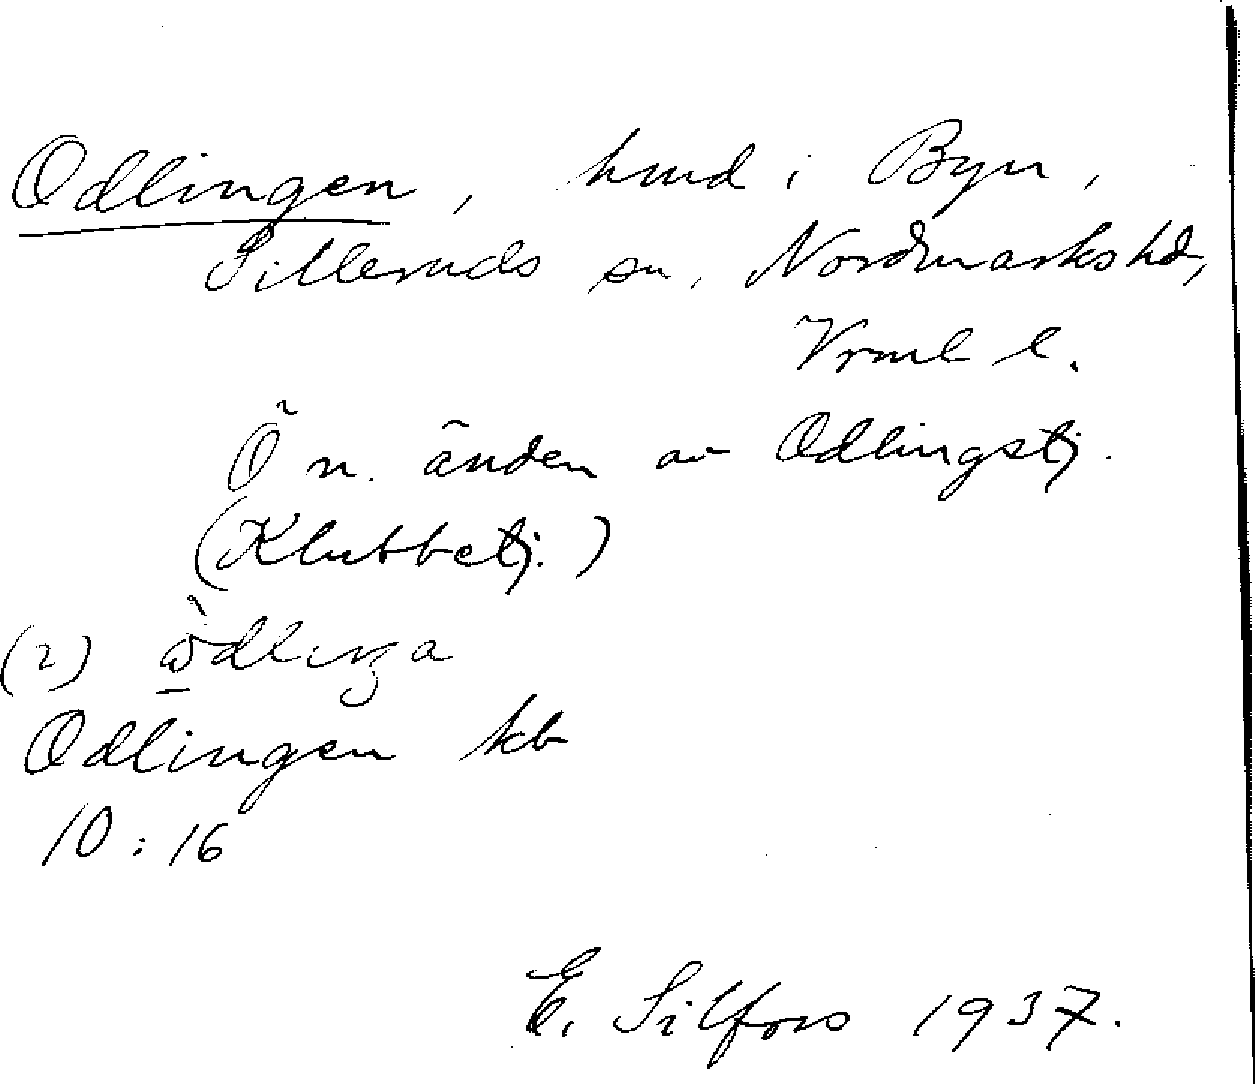 Odlingen, hmd i Byn,
Silleruds sn, Nordmarks hd,
Vrml l.
Ö n. änden av Odlingstj.
(Klubbetj.)
(2)
Odlingen kb
10:16
E. Silfors 1937.